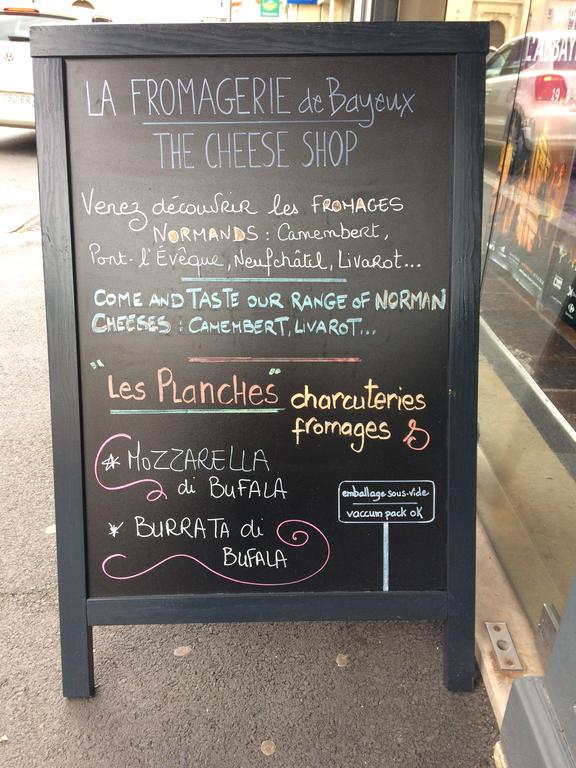 LA FROMAGERIE de Bayeux
THE CHEESE SHOP
Venez découvrir les FROMAGES
NORMANDS : Camembert,
Pont-l'Évêque, Neufchâtel, Livarot...
COME AND TASTE OUR RANGE OF NORMAN
CHEESES : CAMEMBERT, LIVAROT...
"Les Planches" charcuteries
fromages
* MOZZARELLA
di BUFALA
* BURRATA di
BUFALA
emballage sous-vide
vaccum pack OK
L'ABBAY
19